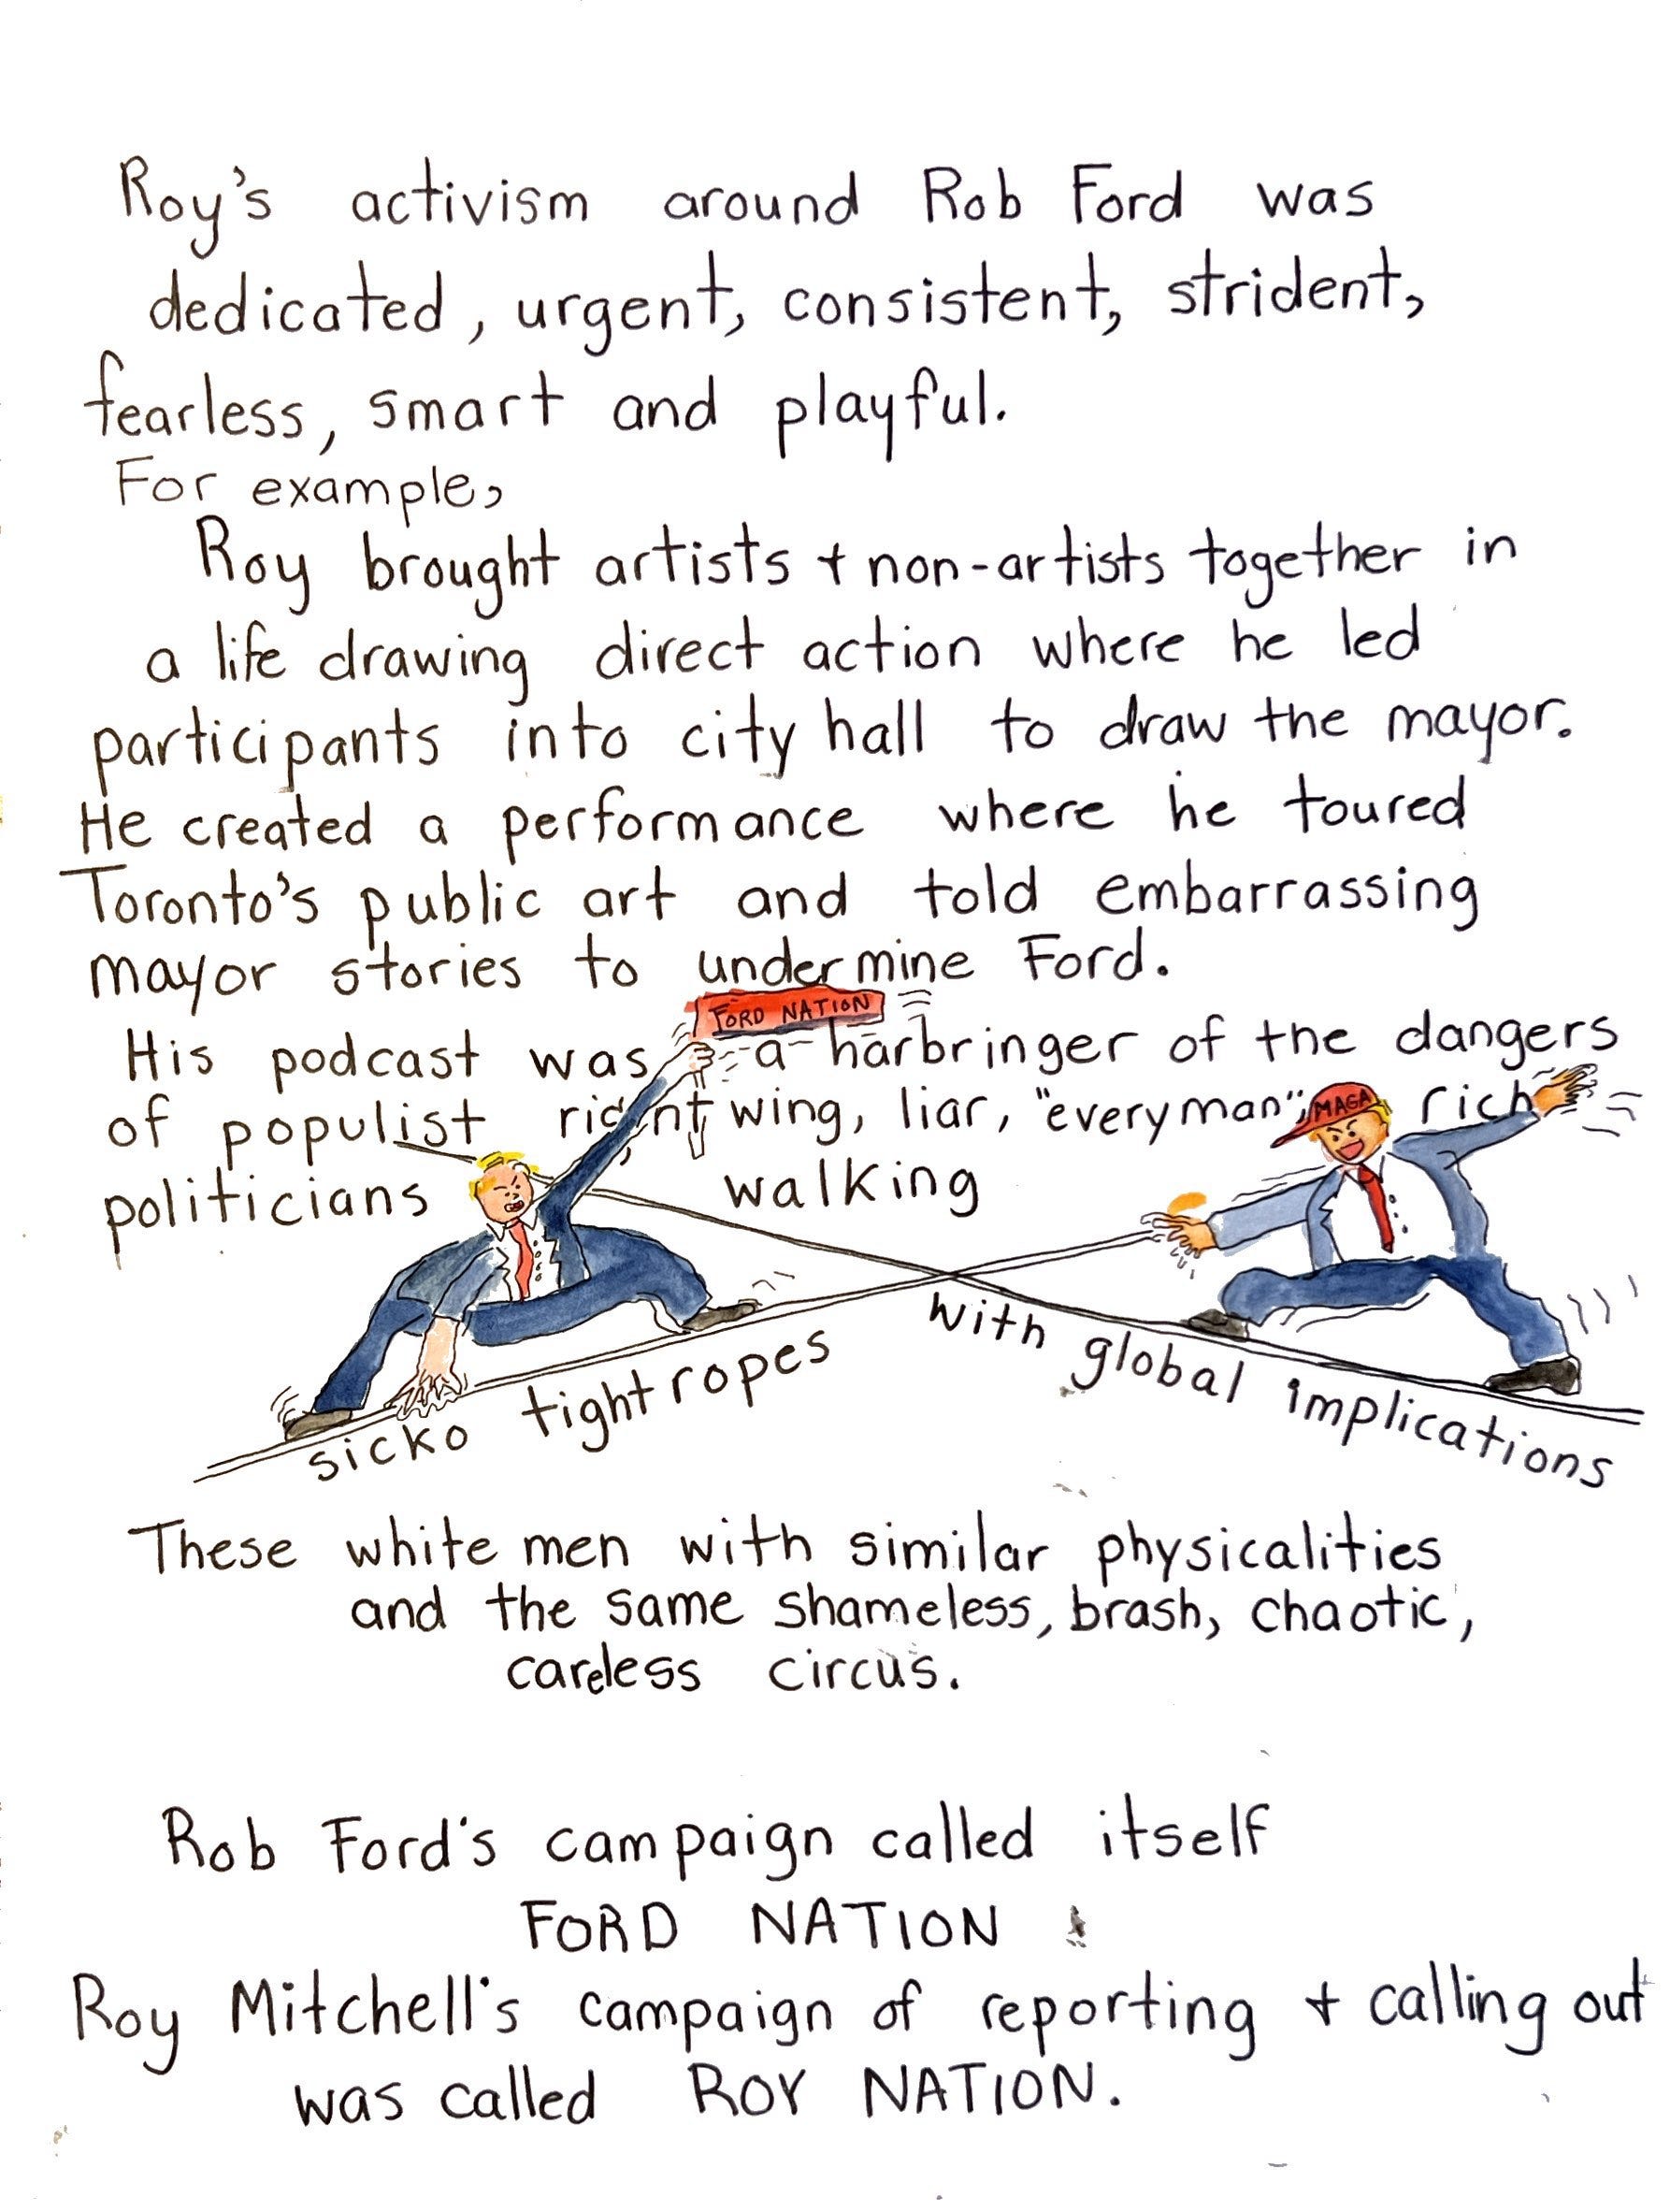 Roy's activism around Rob Ford was
dedicated, urgent, consistent, strident,
fearless, smart and playful.
For example,
Roy brought artists + non-artists together in
a life drawing direct action where he led
participants into city hall to draw the mayor.
He created a performance where he toured
Toronto's public art and told embarrassing
mayor stories to undermine Ford.
FORD NATION
His podcast was a harbringer of the dangers
of populist right wing, liar, "everyman", rich
MAGA
politicians walking
sicko tightropes with global implications
These white men with similar physicalities
and the same shameless, brash, chaotic,
careless circus.
Rob Ford's campaign called itself
FORD NATION
Roy Mitchell's campaign of reporting + calling out
was called ROY NATION.